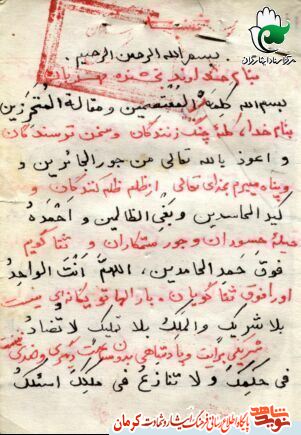 بسم الله الرحمن الرحیم
بنام خداوند بخشنده مهربان
بسم الله کلمة المعتصمین و مقالة المتحرزین
بنام خدا کلمهٔ چنگ زنندگان و سخن ترسندگان
و اعوذ بالله تعالی من جور الجائرین و
و پناه میبرم بخدای تعالی از ظلم ظلم کنندگان و
کید الحاسدین و بغی الظالمین و احمده
حیلهٔ حسودان و جور ستمکاران و ثنا گویم
فوق حمد الحامدین، اللهم انت الواحد
او را فوق ثناگویان. بار الها تو یگانه‌ای نیست
بلا شریک و الملک بلا تملیک لا تضاد
شریکی برایت و پادشاهی بدون
فی حکمک و لا تنازع فی ملکک اسئلک
نوید شاهد
پایگاه اطلاع رسانی فرهنگ ایثار و شهادت کرمان